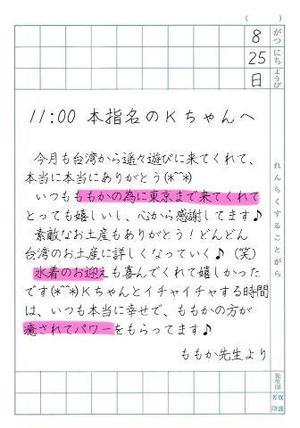 ( )
8 がつ
25 にち
日 ようび
11:00 本指名のKちゃんへ
今月も台湾から遥々遊びに来てくれて、
本当に本当にありがとう(*^^*)
いつもももかの為に東京まで来てくれて
とっても嬉しいし、心から感謝してます♪
素敵なお土産もありがとう！どんどん
台湾のお土産に詳しくなっていく♪（笑）
水着のお迎えも喜んでくれて嬉しかった
です(*^^*)Kちゃんとイチャイチャする時間
は、いつも本当に幸せで、ももかの方が
癒されてパワーをもらってます♪
ももか先生より
れんらくすることがら